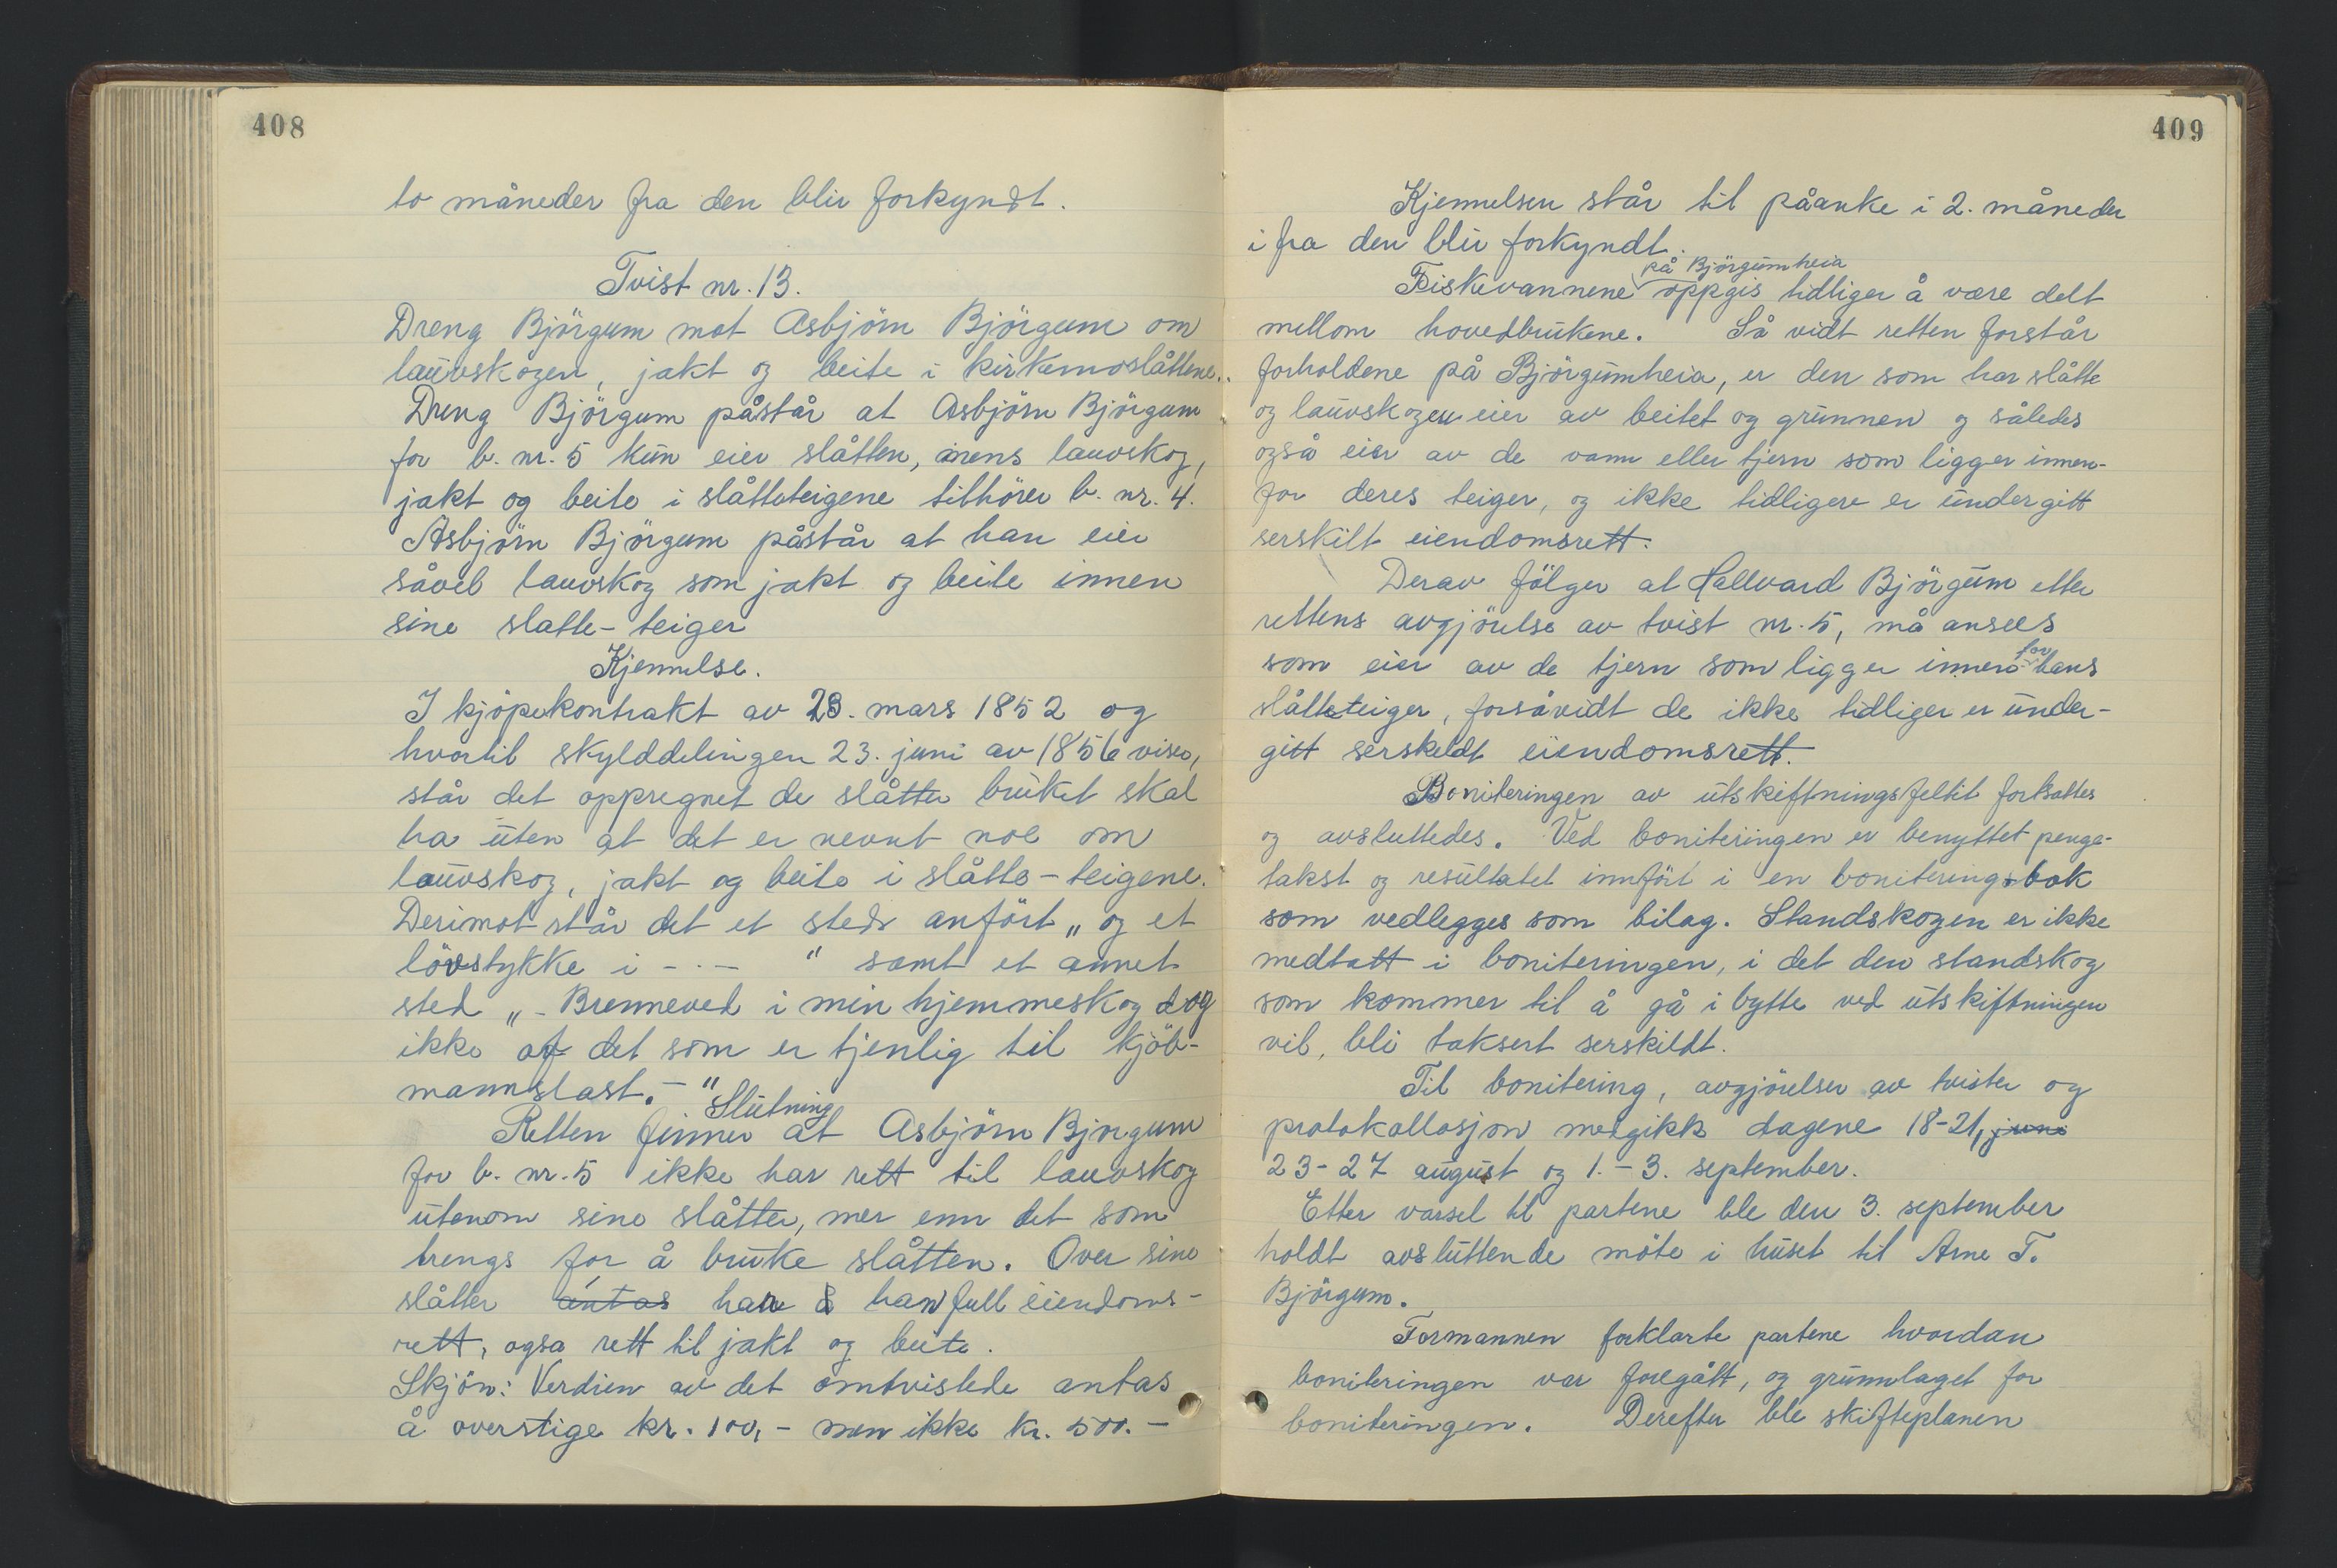 408
to måneder fra den blir forkyndt.
Tvist nr. 13.
Dreng Björgum mot Asbjörn Björgum om
lauvskogen, jakt og beite i kirkemoslåttene.
Dreng Björgum påstår at Asbjörn Björgum
for b. nr. 5 kun eier slåtten, mens lauvskog,
jakt og beite i slåtteteigene tilhörer b. nr. 4.
Asbjörn Björgum påstår at han eier
såvel lauvskog som jakt og beite innen
sine slatte-teiger
Kjennelse.
I kjöpekontrakt av 23. mars 1852 og
hvortil skylddelingen 23. juni av 1856 viser,
står det oppregnet de slåtter bruket skal
ha uten at det er nevnt noe om
lauvskog, jakt og beite i slåtte-teigene.
Derimot står det et steds anfört „ og et
lövstykke i - . - " samt et annet
sted „ - Brenneved i min hjemmeskog dog
ikke af det som er tjenlig til kjöb-
mannslast. - "
Slutning
Retten finner at Asbjörn Bjorgum
for b. nr. 5 ikke har rett til lauvskog
utenom sine slåtter, mer enn det som
trengs for å bruke slåtten. Over sine
slåtter antas har han full eiendoms-
rett, ogsa rett til jakt og beite.
Skjön: Verdien av det omtvistede antas
å overstige kr. 100,- men ikke kr. 500.-
409
Kjennelsen står til påanke i 2. måneder
i fra den blir forkyndt.
på Björgumheia
Fiskevannene oppgis tidliger å være delt
mellom hovedbrukene. Så vidt retten forstår
forholdene på Björgumheia, er den som har slåtte
og lauvskogen eier av beitet og grunnen og således
også eier av de vann eller tjern som ligger innen-
for deres teiger, og ikke tidligere er undergitt
serskilt eiendomsrett.
Derav fölger at Hallvard Björgum etter
rettens avgjörelse av tvist nr. 5, må ansees
som eier av de tjern som ligger innen for hans
slåtteteiger, forsåvidt de ikke tidliger er under-
gitt serskeldt eiendomsrett.
Boniteringen av utskiftningsfeltet fortsattes
og avsluttedes. Ved boniteringen er benyttet penge-
takst og resultatet innfört i en boniteringsbok
som vedlegges som bilag. Standskogen er ikke
medtatt i boniteringen, i det den standskog
som kommer til å gå i bytte ved utskiftningen
vil, bli taksert serskildt.
Til bonitering, avgjörelser av tvister og
protokollasjon medgikk dagene 18-21, juni
23-27 august og 1.-3. september.
Etter varsel til partene ble den 3. september
holdt avsluttende möte i huset til Arne T.
Björgum.
Formannen forklarte partene hvordan
boniteringen var foregått, og grunnlaget for
boniteringen. Derefter ble skifteplanen